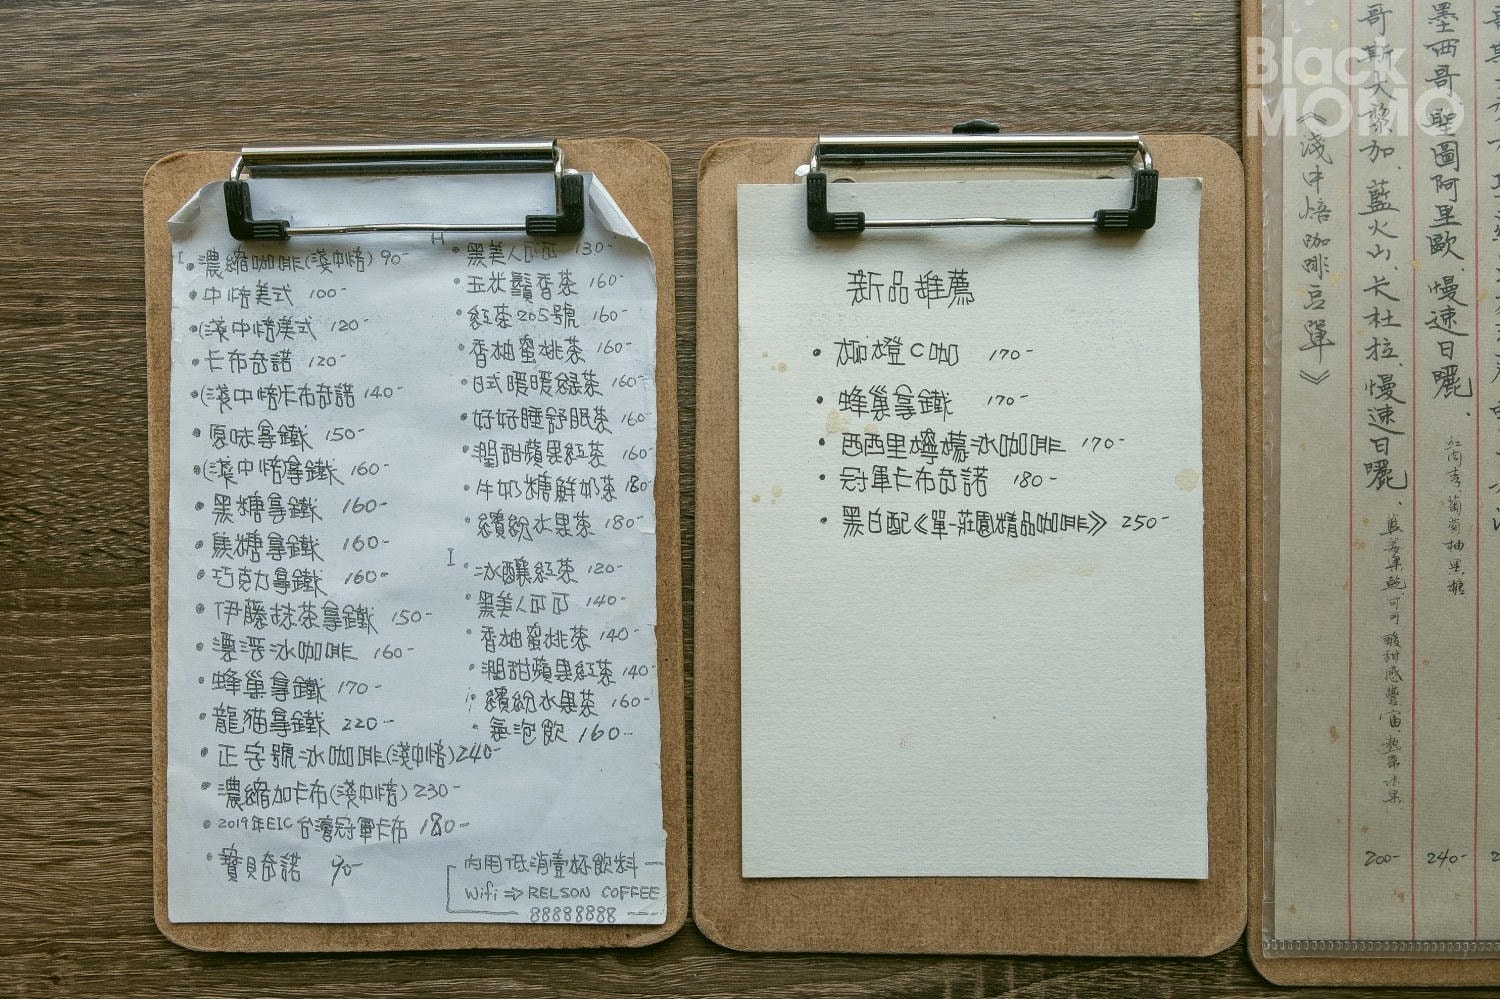 Black
MOMO
濃縮咖啡(淺中焙) 90-
中焙美式 100-
(淺中焙美式 120-
卡布奇諾 120-
(淺中焙卡布奇諾 140-
原味拿鐵 150-
(淺中焙拿鐵 160-
黑糖拿鐵 160-
焦糖拿鐵 160-
巧克力拿鐵 160-
伊藤抹茶拿鐵 150-
漂浮冰咖啡 160-
蜂巢拿鐵 170-
龍貓拿鐵 220-
正字號冰咖啡(淺中焙) 240-
濃縮加卡布(淺中焙) 230-
2019年EIC台灣冠軍卡布 180-
寶貝奇諾 90-
H
黑美人可可 130-
玉米鬚香茶 160-
紅茶205號 160-
香柚蜜桃茶 160-
日式暖暖綠茶 160-
好好睡舒眠茶 160-
潤甜蘋果紅茶 160-
牛奶糖鮮奶茶 180-
繽紛水果茶 180-
I
冰釀紅茶 120-
黑美人可可 140-
香柚蜜桃茶 140-
潤甜蘋果紅茶 140-
繽紛水果茶 160-
氣泡飲 160-
內用低消壹杯飲料
Wifi⇒RELSON COFFEE
88888888
新品推薦
柳橙C咖 170-
蜂巢拿鐵 170-
西西里檸檬冰咖啡 170-
冠軍卡布奇諾 180-
黑白配《單一莊園精品咖啡》 250-
墨西哥 聖圖阿里歐.慢速日曬. 240-
哥斯大黎加.藍火山.卡杜拉.慢速日曬. 200-
《淺中焙咖啡豆單》